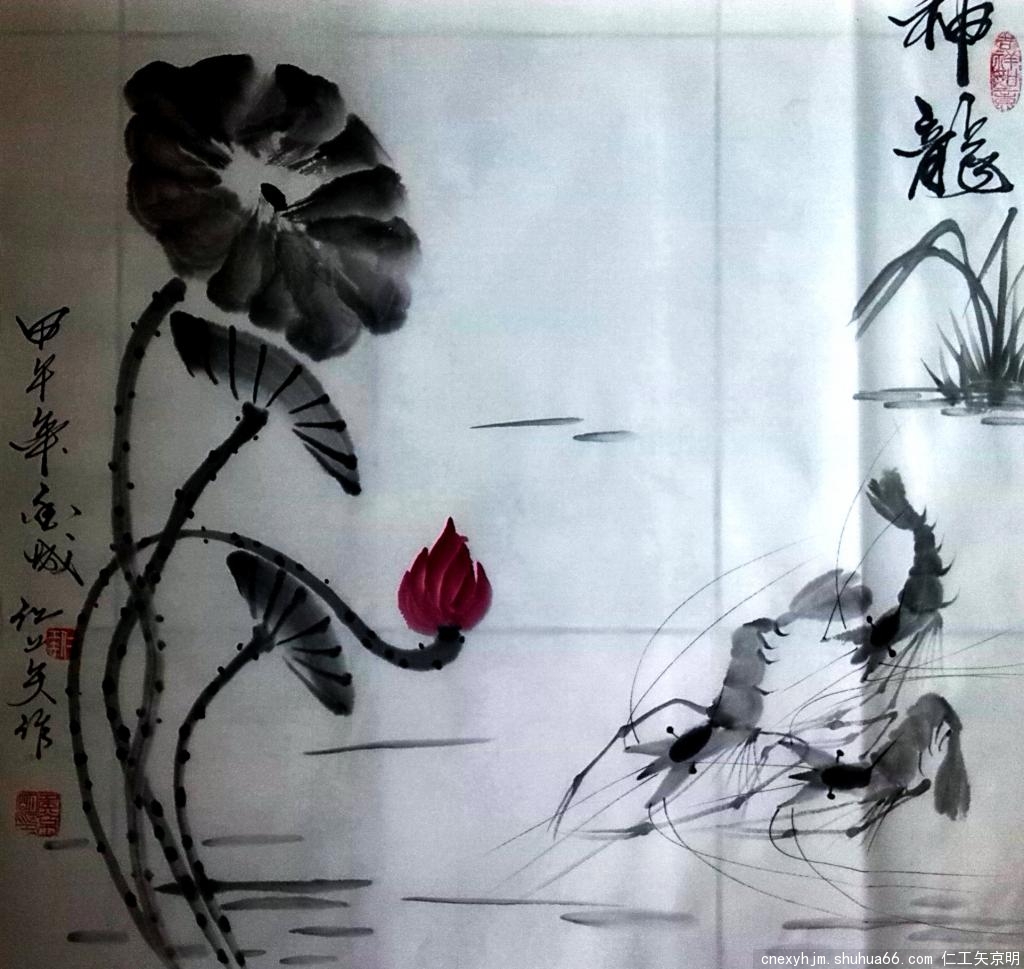 神龍
吉祥如意
甲午年金城仁工矢作
cnexyhjm.shuhua66.com 仁工矢京明